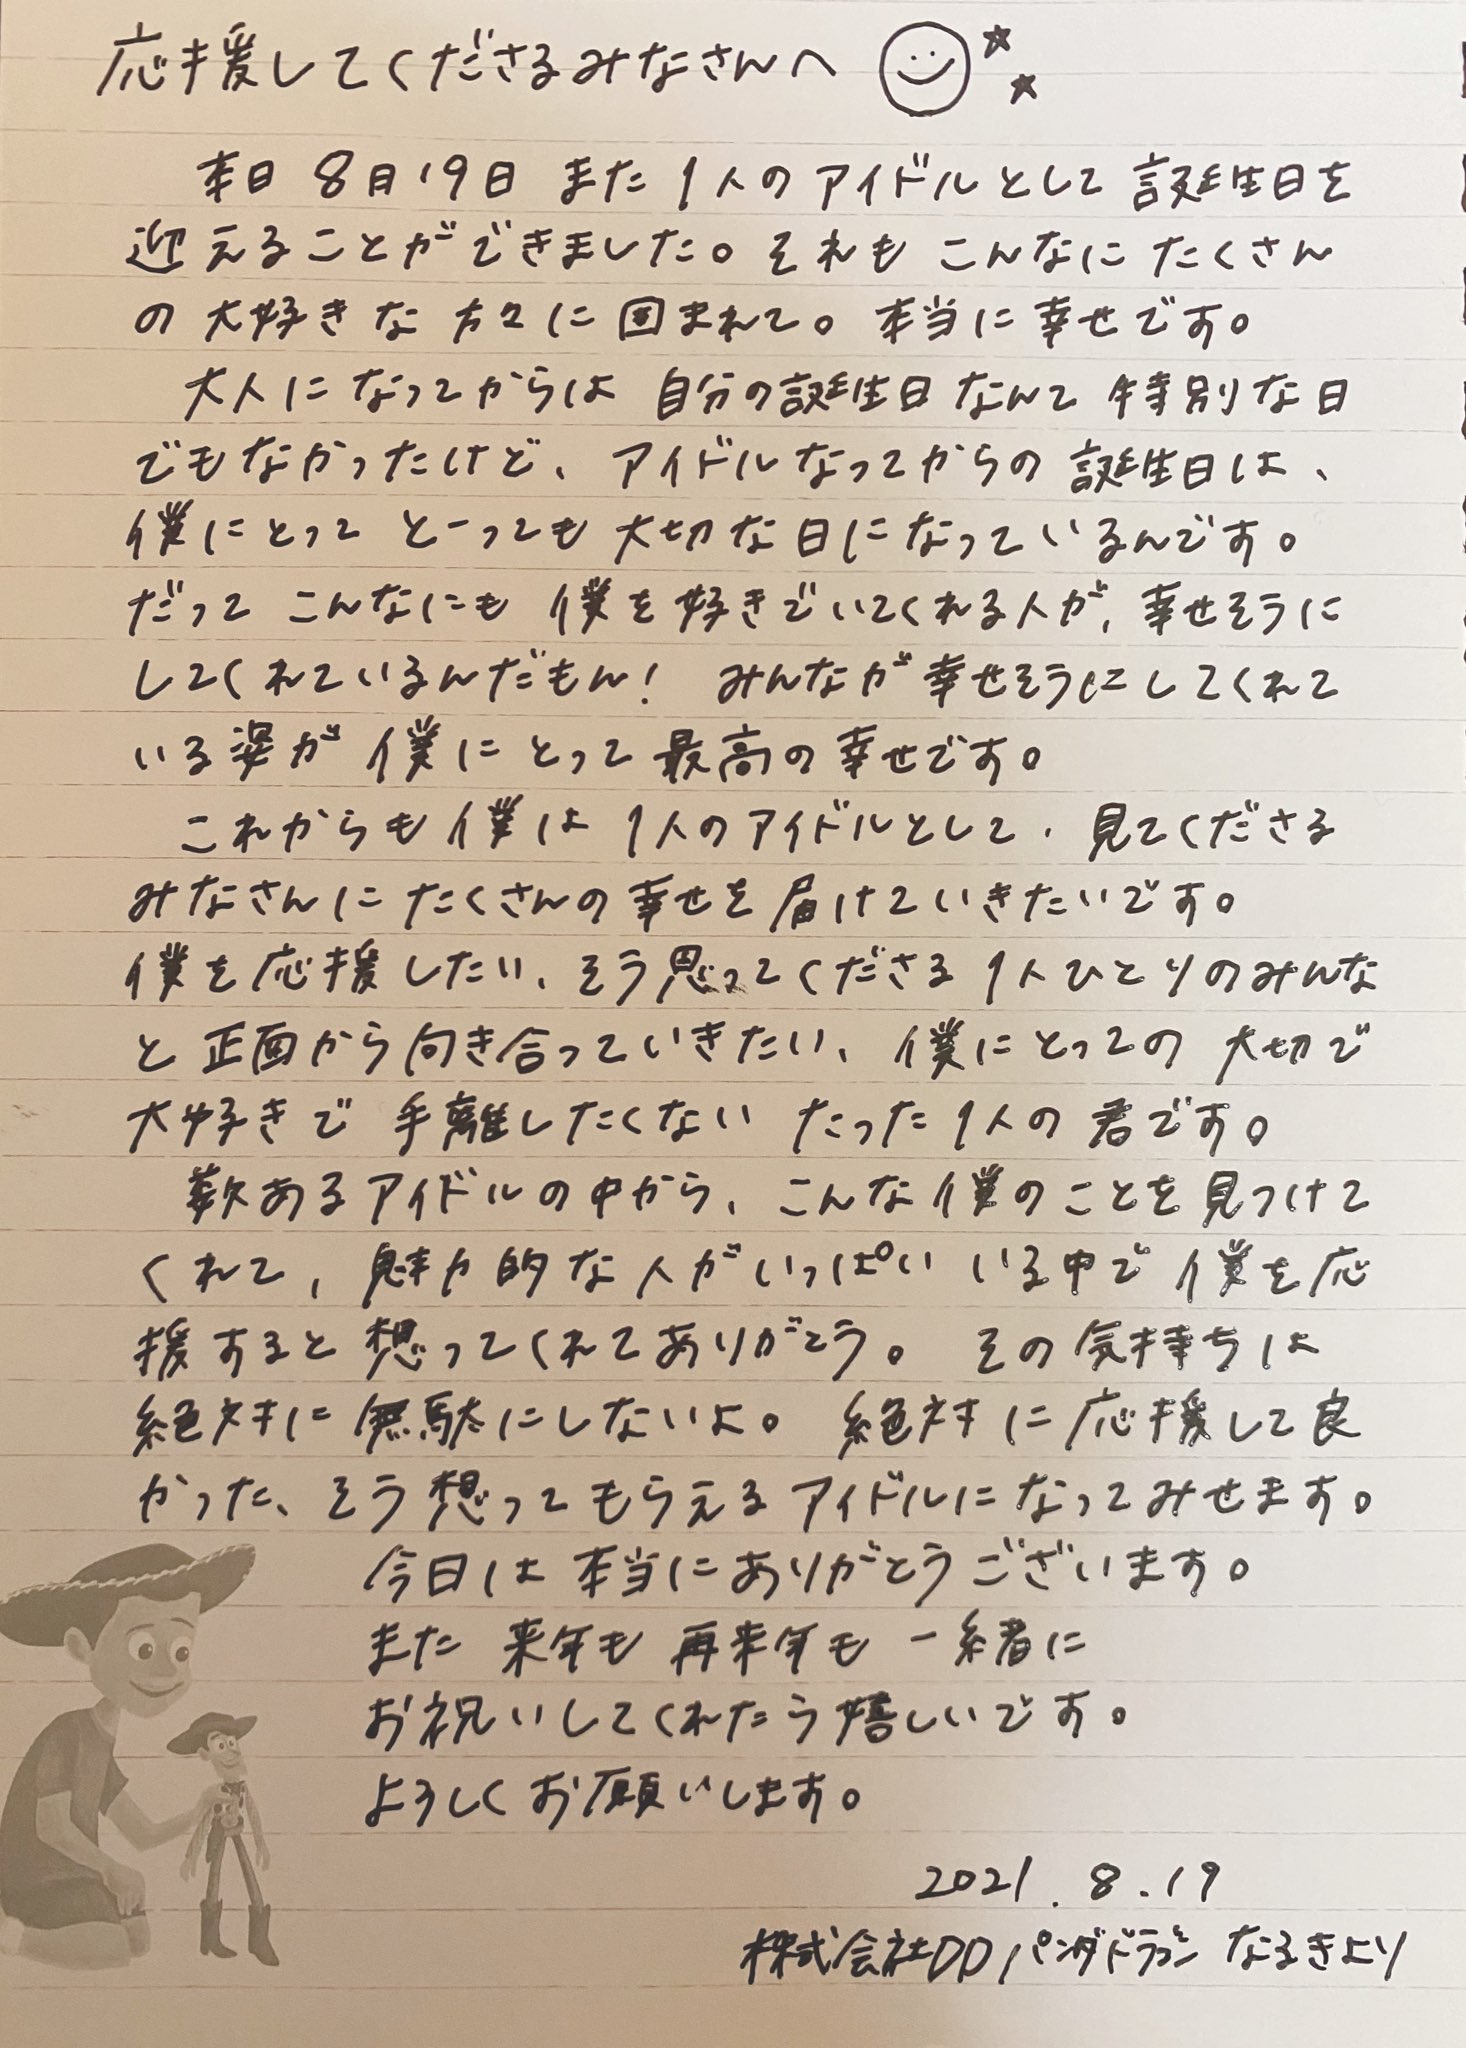 応援してくださるみなさんへ
本日 8月19日 また 1人のアイドルとして 誕生日を
迎えることができました。それも こんなに たくさん
の 大好きな 方々に 囲まれて。本当に 幸せです。
大人になってからは 自分の誕生日なんて 特別な日
でもなかったけど、アイドルなってからの 誕生日は、
僕にとって とーっても 大切な日になっているんです。
だって こんなにも 僕を好きでいてくれる人が、幸せそうに
してくれているんだもん! みんなが幸せそうにしてくれて
いる姿が 僕にとって最高の幸せです。
これからも僕は 1人のアイドルとして、見てくださる
みなさんに たくさんの幸せを届けていきたいです。
僕を応援したい、そう思ってくださる 1人ひとりのみんな
と 正面から向き合っていきたい、僕にとっての 大切で
大好きで 手離したくない たった1人の 君です。
数あるアイドルの中から、こんな僕のことを見つけて
くれて、魅力的な人がいっぱい いる中で 僕を応
援すると 想ってくれてありがとう。 その気持ちは
絶対に 無駄にしないよ。 絶対に応援して良
かった、そう想ってもらえるアイドルになってみせます。
今日は 本当にありがとうございます。
また 来年も 再来年も 一緒に
お祝いしてくれたら嬉しいです。
よろしくお願いします。
2021.8.19
株式会社DD パンダドラゴン なるきより